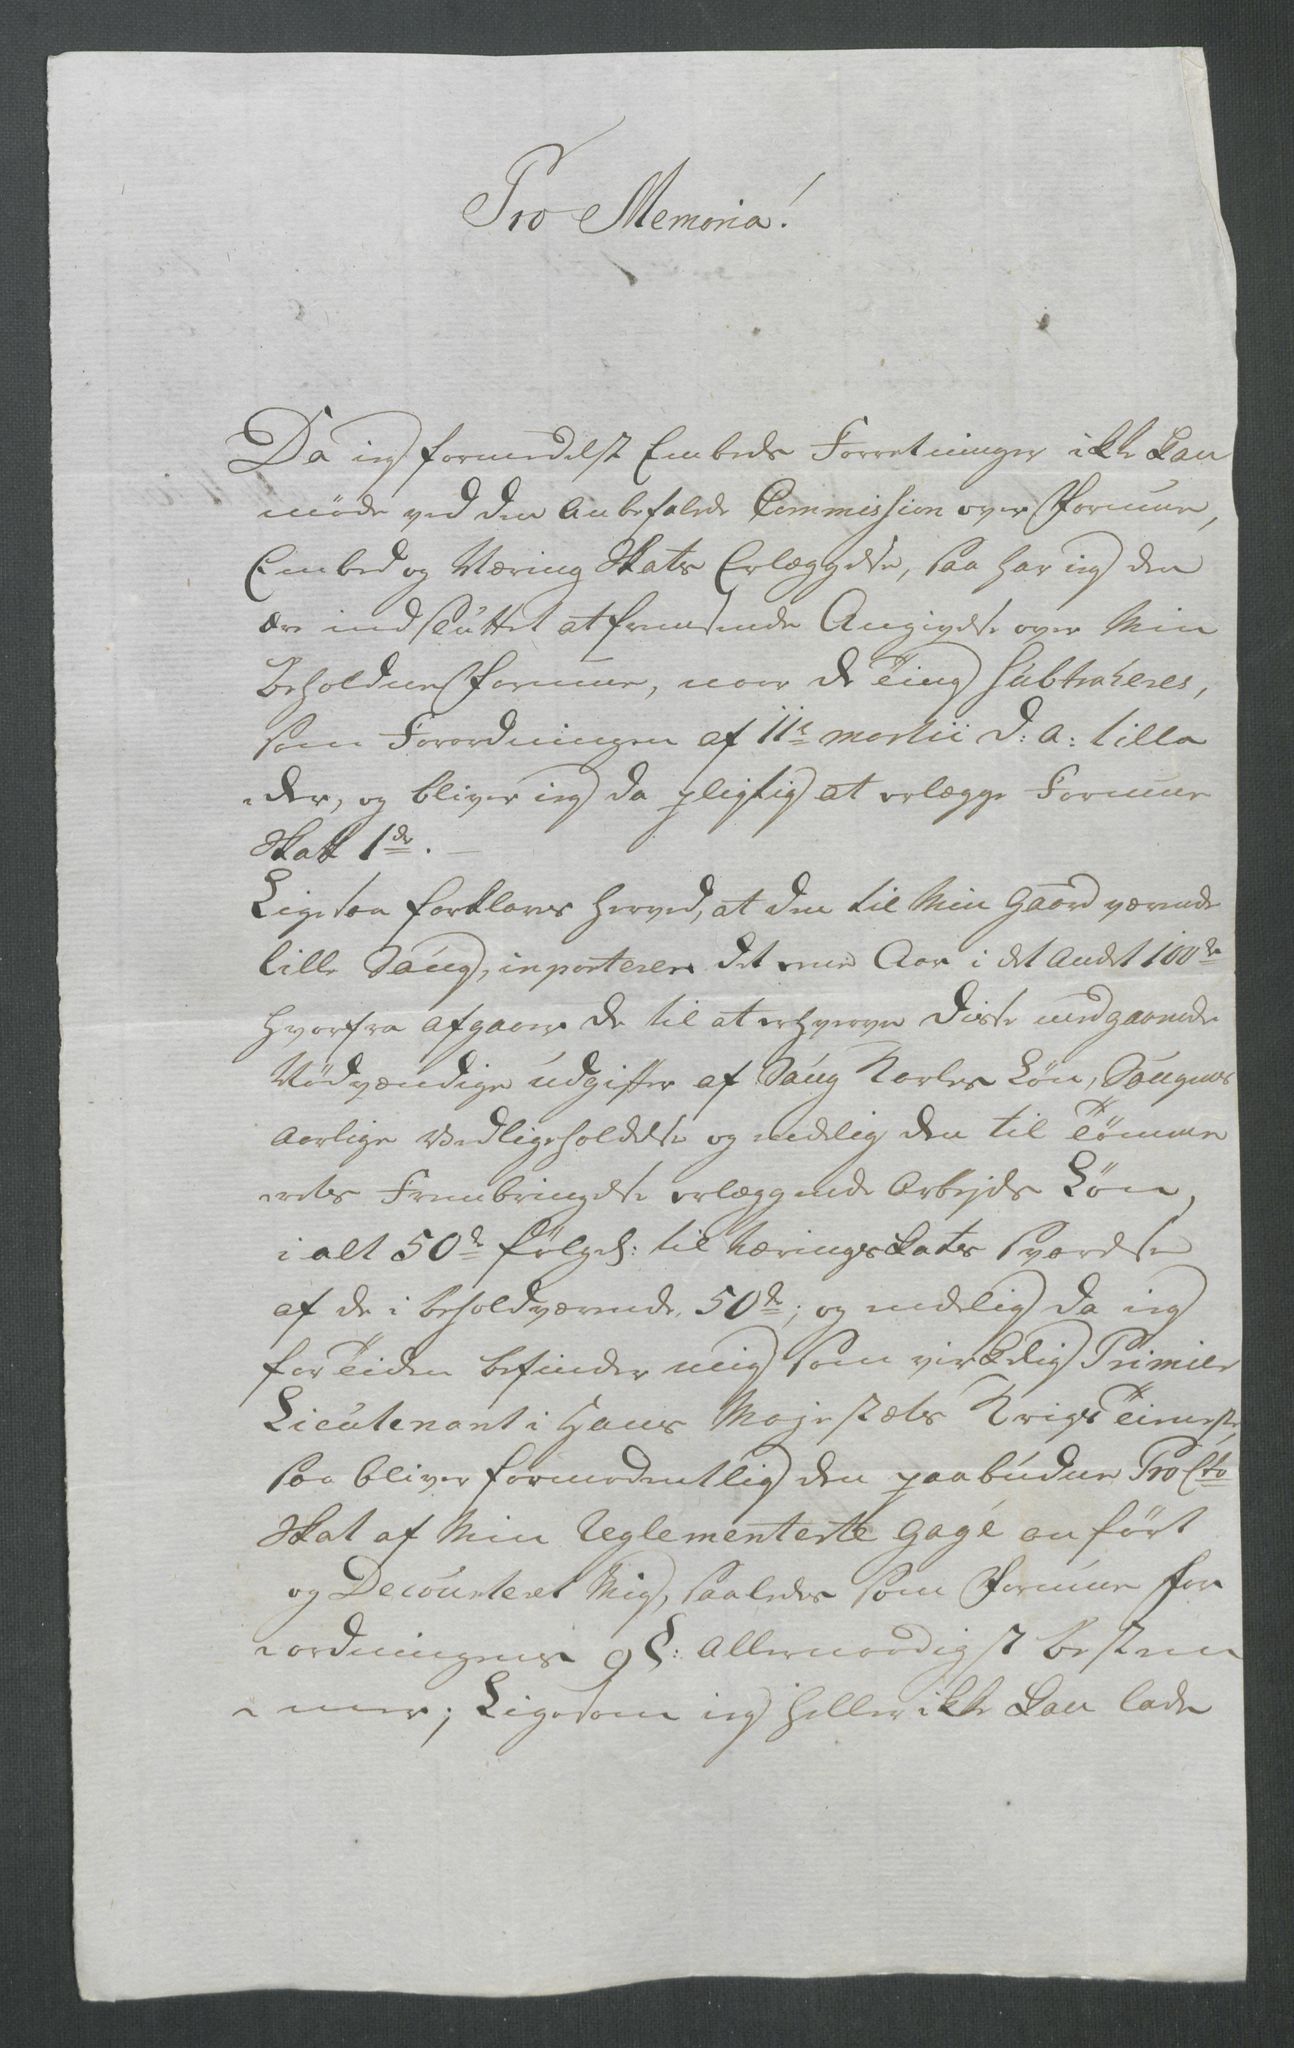 Pro Memoria!
Da ieg formedelst Embeds Forretninger ikke kan
møde ved den anbefalede Commission over Formue,
Embed og Næring Skats Erlæggelse, saa har ieg den
ære indsluttet at fremsende Angivelse over Min
beholdne Formue, naar de Ting Subtraheres,
som Forordningen af 11te martii d: a: tilla
der, og bliver ieg da pligtig at erlægge Formue
Skatt 1 dr. —
Ligesaa forklares herved, at den til Min Gaard værende
lille Saug, importerer det ene Aar i det andet 100 dr
hvorfra afgaaer de til at erhverve disse medgaaende
Nödvændige udgifter af Saug Karles Løn, Saugens
aarlige Vedligeholdelse og endelig den til Tömme
rets Frembringelse erlæggende Arbejds Løn,
i alt 50 dr følgel: til næringskats svarelse
af de i behold værende 50 dr; og endelig da ieg
for Tiden befinder mig som virkelig Primier
Lieutenant i Hans Majestæts Krigs Tieneste,
saa bliver formodentlig den paabudne Pro Cto
Skat af Min Reglementerte Gage anført
og Decourteret Mig, saaledes som Formue for
ordningens 9 §: allernaadigst bestem
mer; Ligesom ieg heller ikke kan lade